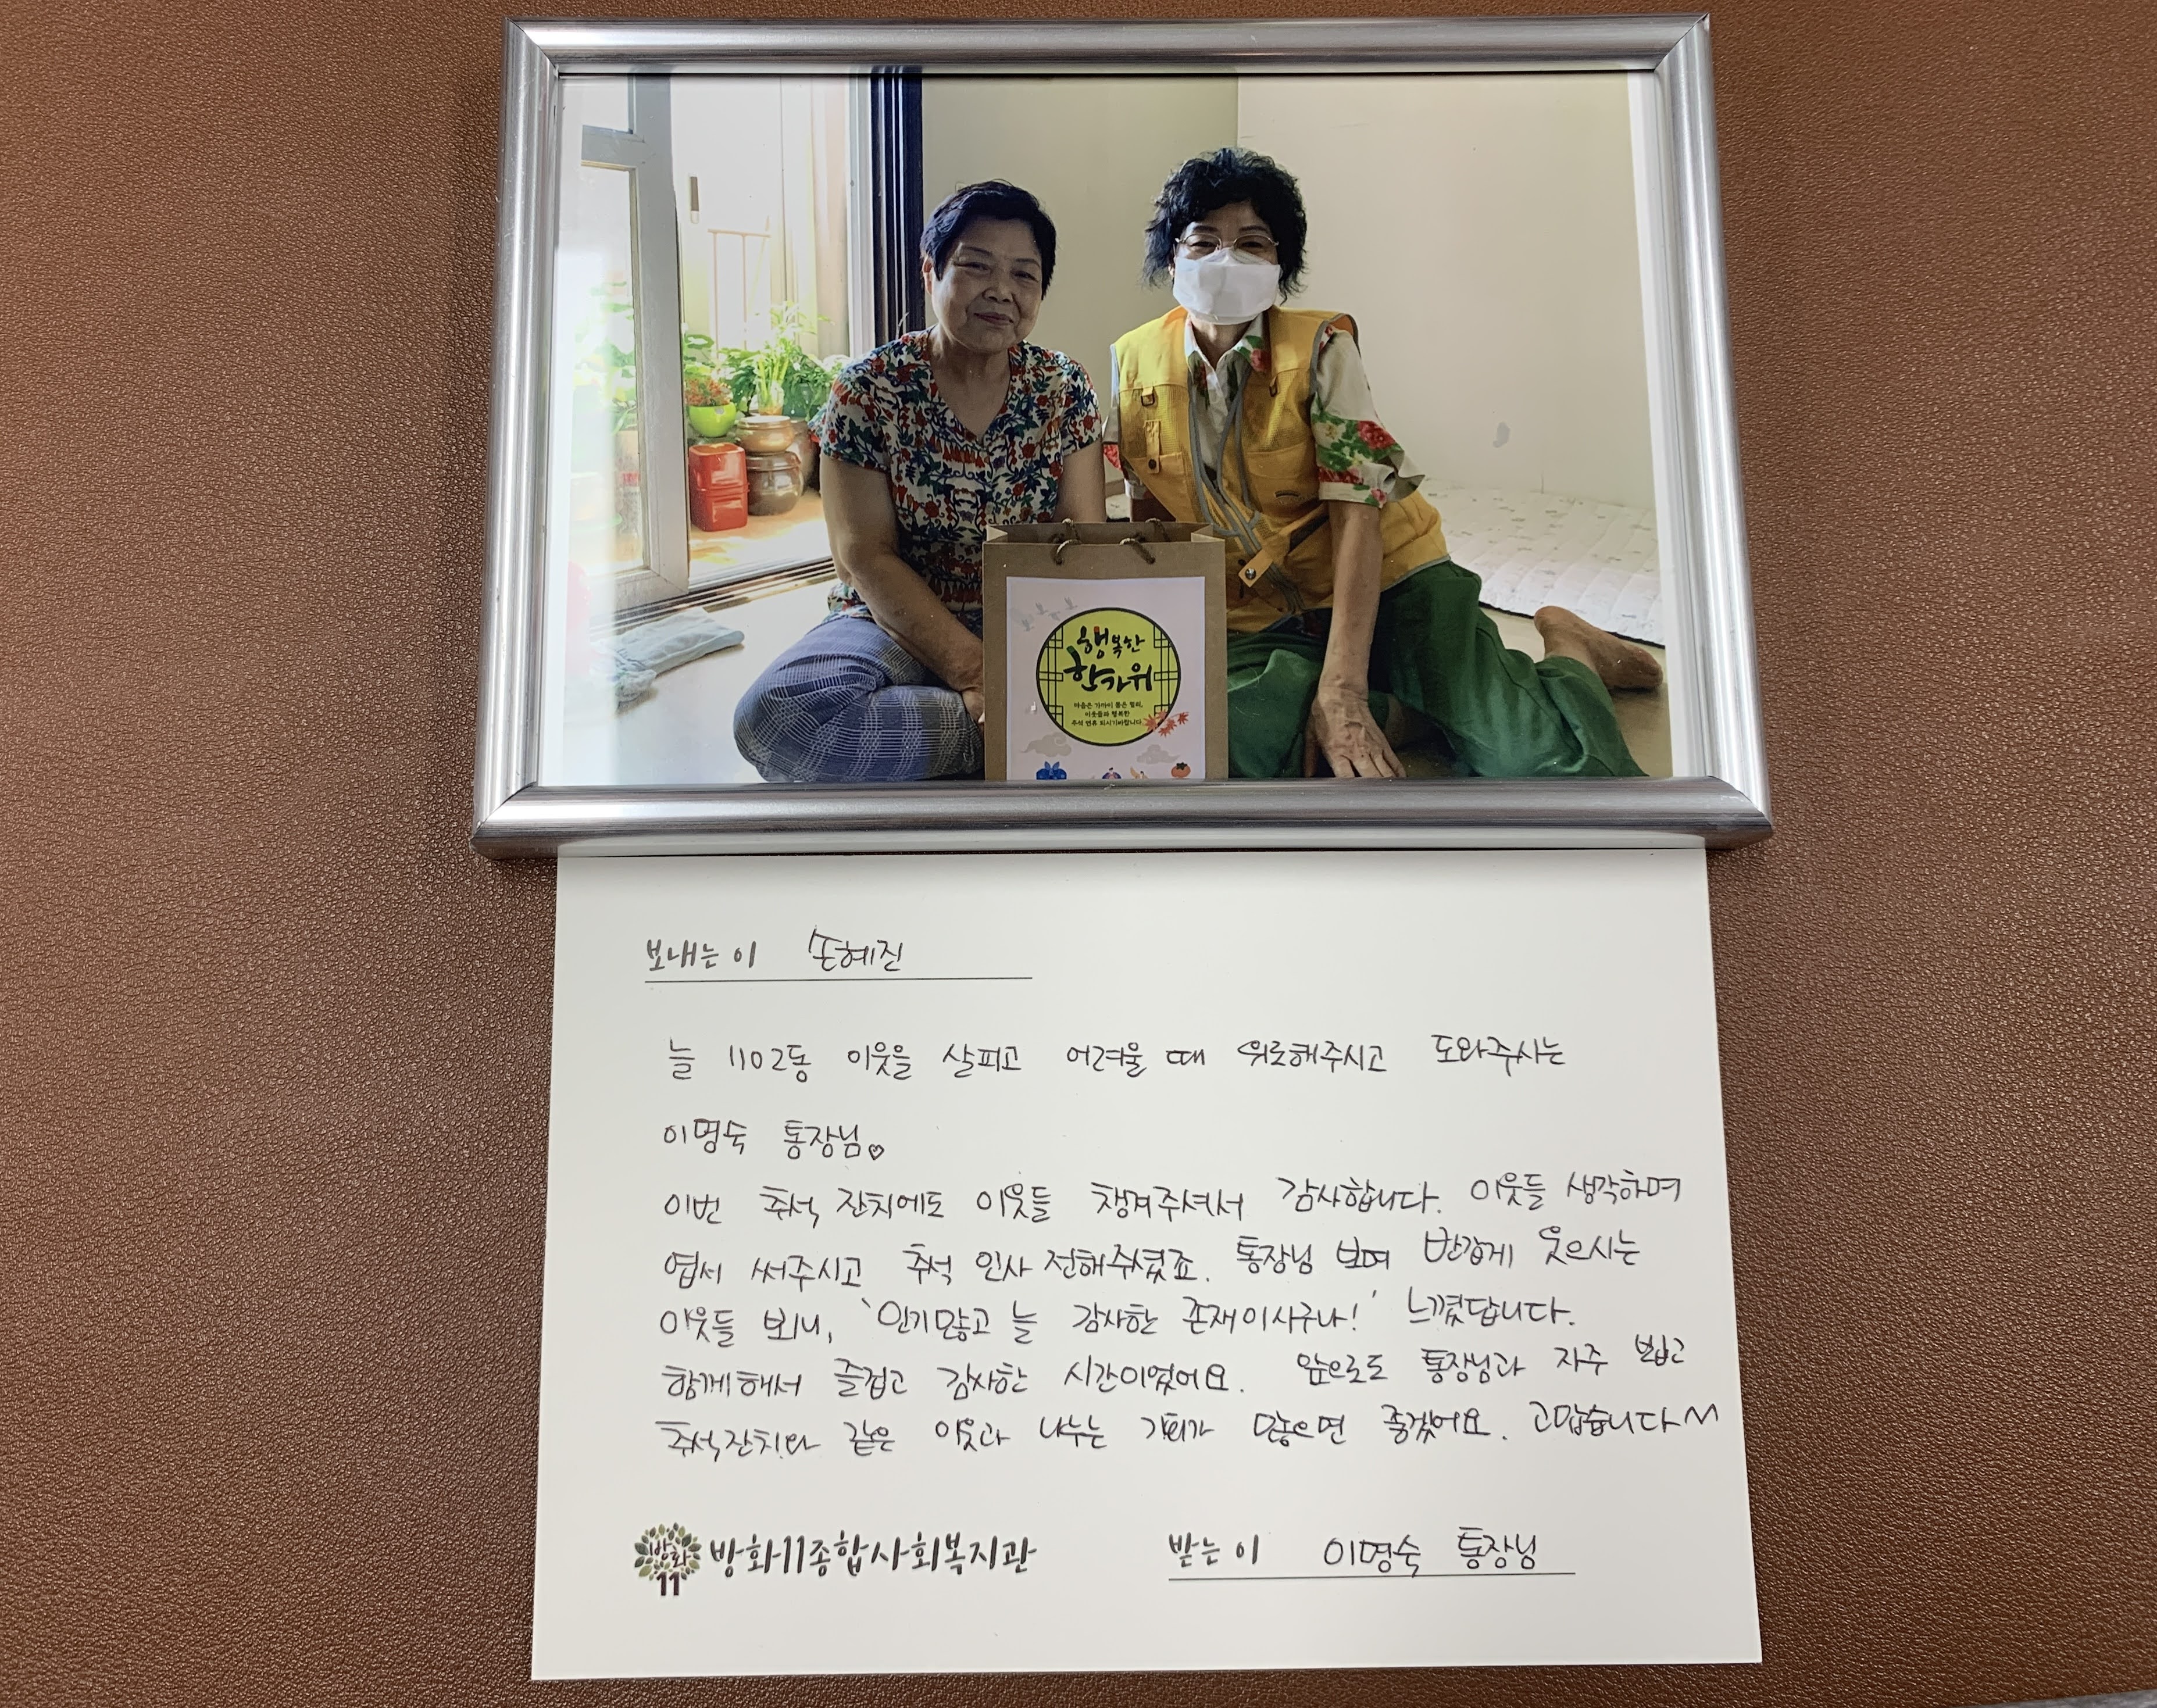 행복한
한가위
마음은 가까이 몸은 멀리,
이웃들과 행복한
추석 연휴 되시기바랍니다.
보내는 이 손혜진
늘 1102동 이웃을 살피고 어려울 때 위로해주시고 도와주시는
이명숙 통장님♡
이번 추석 잔치에도 이웃들 챙겨주셔서 감사합니다. 이웃들 생각하며
엽서 써주시고 추석 인사 전해주셨죠. 통장님 보며 반갑게 웃으시는
이웃들 보니, '인기많고 늘 감사한 존재이시구나!' 느꼈답니다.
함께해서 즐겁고 감사한 시간이였어요. 앞으로도 통장님과 자주 뵙고
추석잔치와 같은 이웃과 나누는 기회가 많으면 좋겠어요. 고맙습니다^^
방화
11
방화11종합사회복지관
받는 이 이명숙 통장님